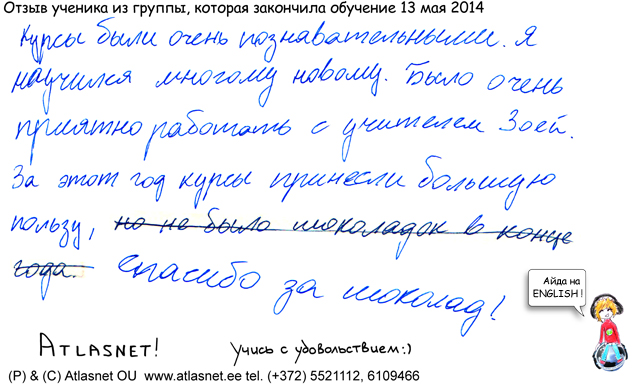 Отзыв ученика из группы, которая закончила обучение 13 мая 2014
Курсы были очень познавательными. Я
научился многому новому. Было очень
приятно работать с учителем Зоей.
За этот год курсы принесли большую
пользу, но не было шоколадок в конце
года. Спасибо за шоколад!
Айда на
ENGLISH !
ATLASNET!
Учись с удовольствием:)
(P) & (C) Atlasnet OU www.atlasnet.ee tel. (+372) 5521112, 6109466